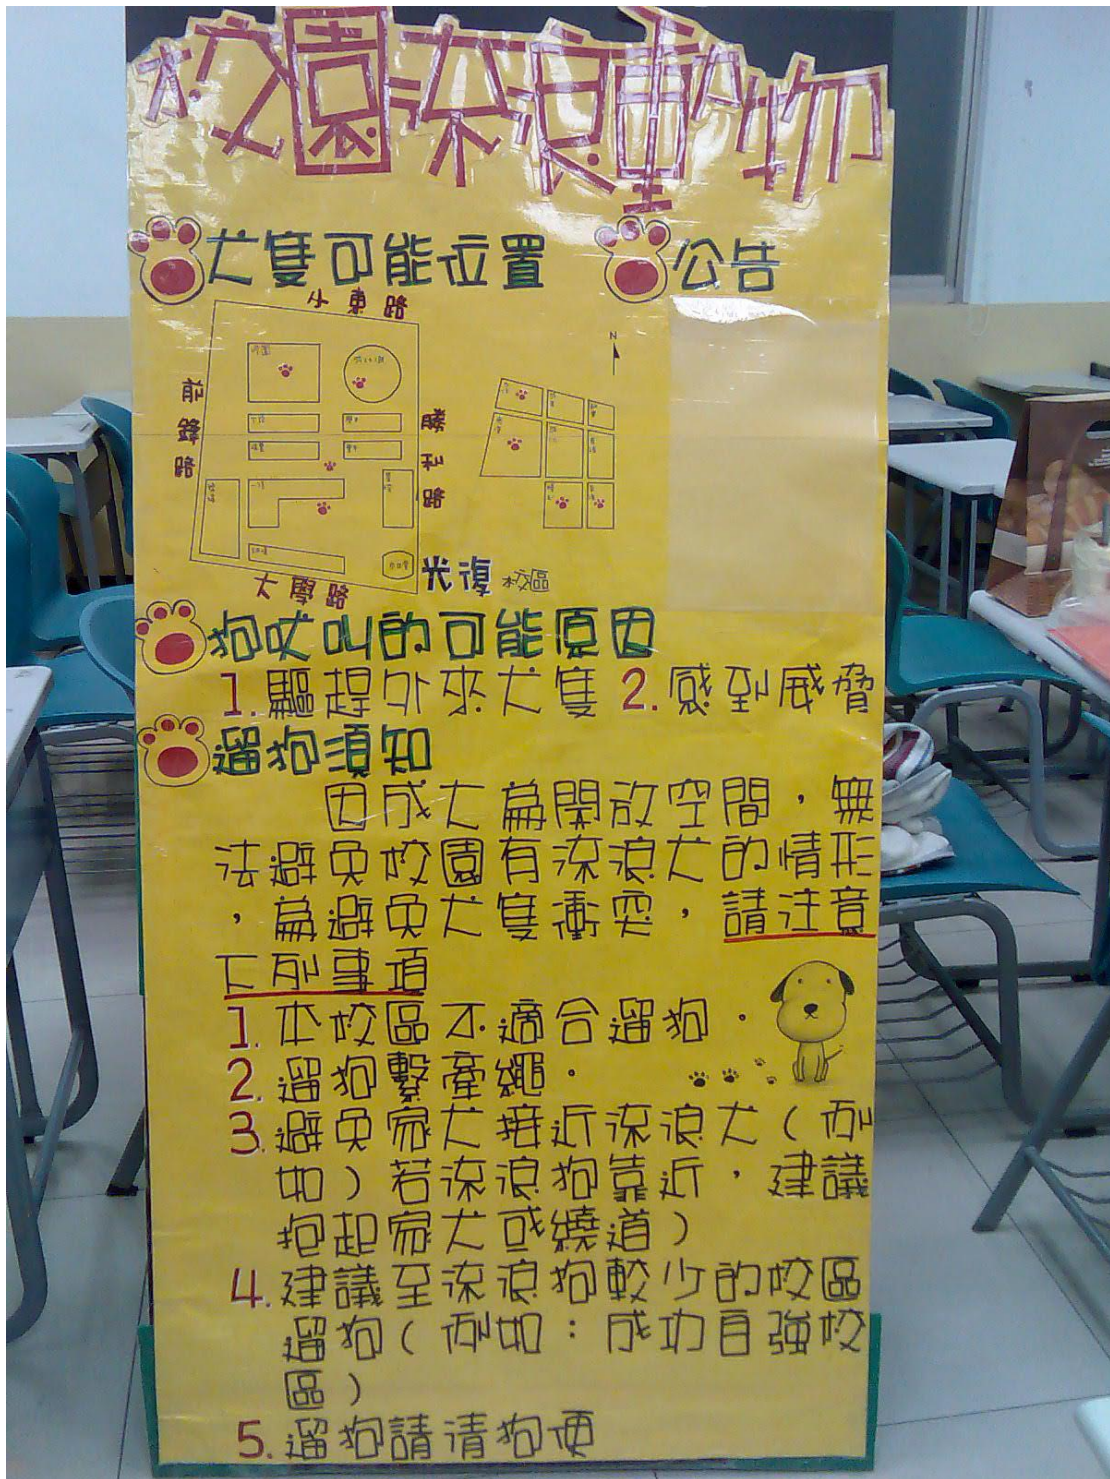 校園流浪動物
犬隻可能位置
公告
小東路
前鋒路
勝利路
大學路
光復校區
N
狗吠叫的可能原因
1.驅趕外來犬隻 2.感到威脅
遛狗須知
因成大為開放空間，無
法避免校園有流浪犬的情形
，為避免犬隻衝突，請注意
下列事項
1.本校區不適合遛狗。
2.遛狗繫牽繩。
3.避免家犬接近流浪犬(例
如)若流浪狗靠近，建議
抱起家犬或繞道)
4.建議至流浪狗較少的校區
遛狗(例如：成功自強校
區)
5.遛狗請清狗便